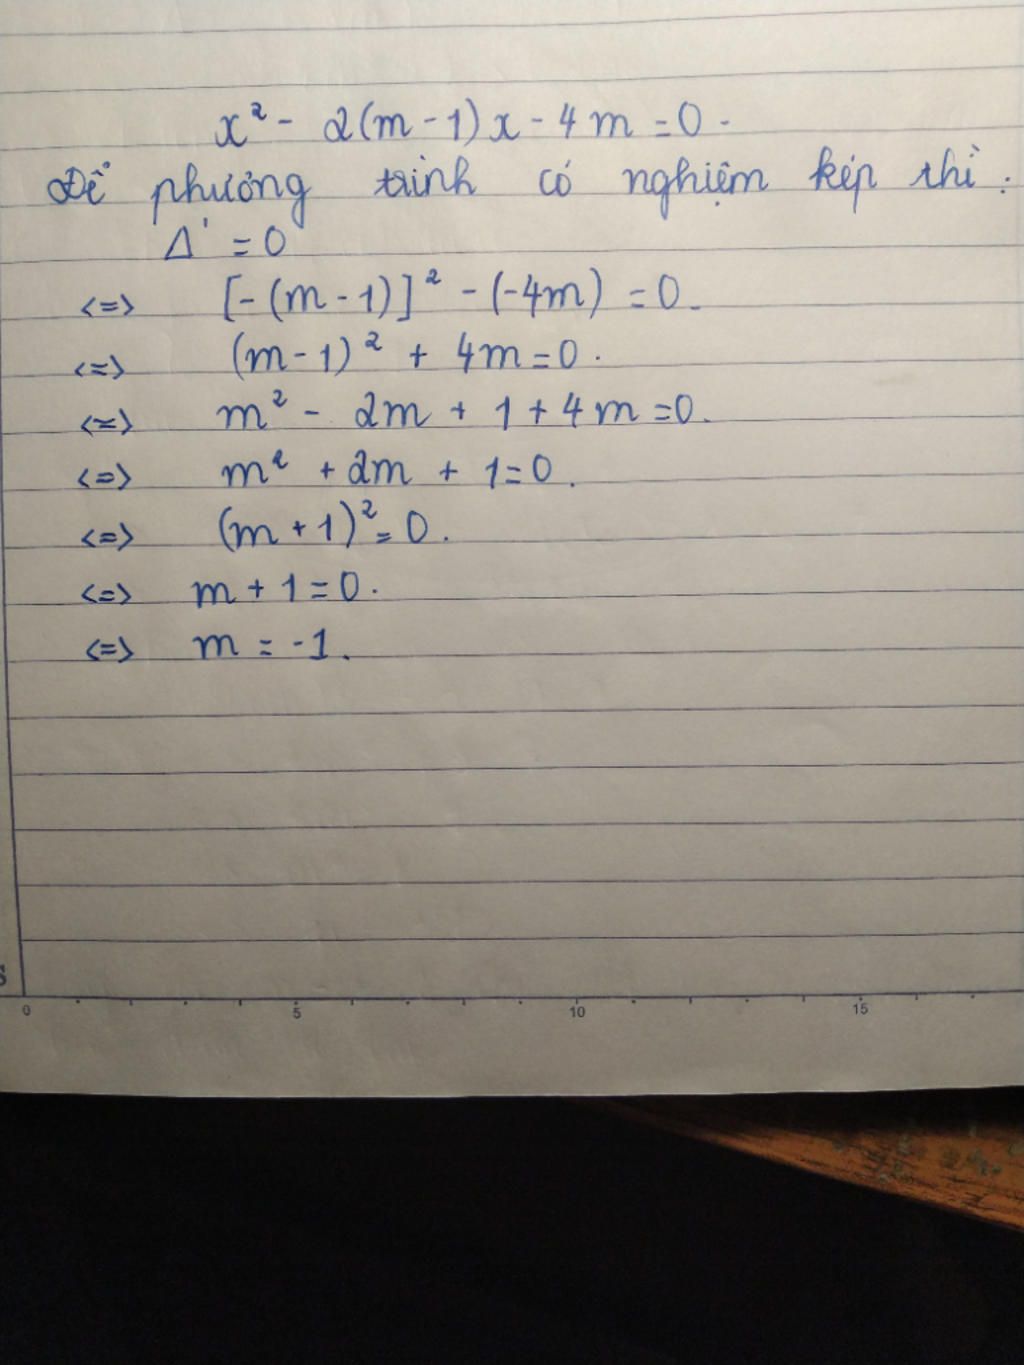 x² - 2(m - 1)x - 4m = 0.
Để phương trình có nghiệm kép thì:
Δ' = 0
<=> [-(m - 1)]² - (-4m) = 0.
<=> (m - 1)² + 4m = 0.
<=> m² - 2m + 1 + 4m = 0.
<=> m² + 2m + 1 = 0.
<=> (m + 1)² = 0.
<=> m + 1 = 0.
<=> m = -1.
S
0 5 10 15